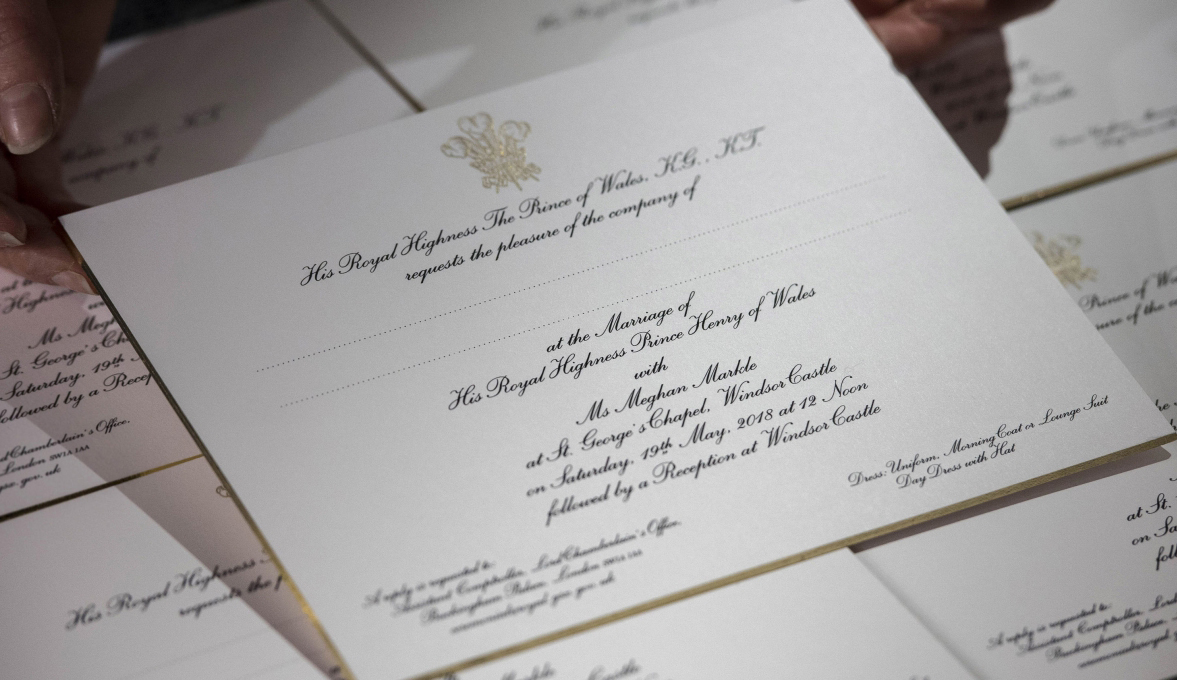 His Royal Highness The Prince of Wales, K.G., K.T.
requests the pleasure of the company of
at the Marriage of
His Royal Highness Prince Henry of Wales
with
Ms Meghan Markle
at St. George's Chapel, Windsor Castle
on Saturday, 19th May, 2018 at 12 Noon
followed by a Reception at Windsor Castle
Dress: Uniform, Morning Coat or Lounge Suit
Day Dress with Hat
A reply is requested to:
Assistant Comptroller, Lord Chamberlain's Office,
Buckingham Palace, London SW1A 1AA
Ms Megh
St. George's Cha
Saturday, 19th M
followed by a Recep
Chamberlain's Office,
London SW1A 1AA
His Royal Highness
requests the p
Prince of W
sure of the
at St.
on Sa
foll
A reply is requested to:
Assistant Comptroller, Lord
Buckingham Palace,